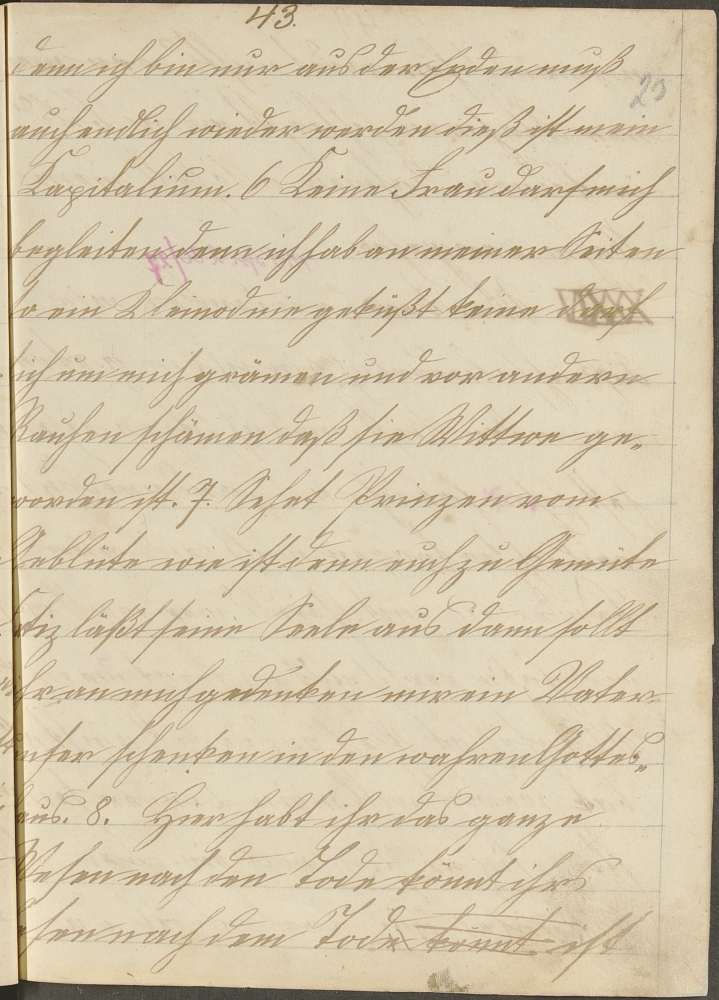 43.
25
denn ich bin nur aus der Erden muß
auch endlich wieder werden dieß ist mein
Capitalium. 6 Keine Frau darf mich
begleiten denn ich hab an meiner Seiten
so ein Kleinod nie geküßt keine darf
sich um mich grämen und vor andern
schämen daß sie Wittwe ge„
worden ist. 7. Sehet Prinzen vom
Geblüte wie ist denn euch zu Gemüte
läßt seine Seele aus dann sollt
ihr an mich gedenken mir ein Vater„
unser schenken in den wahren Gottes„
aus. 8. Hier habt ihr das ganze
Wesen nach den Tode könnt ihrs
esen nach dem Tode könnt ist